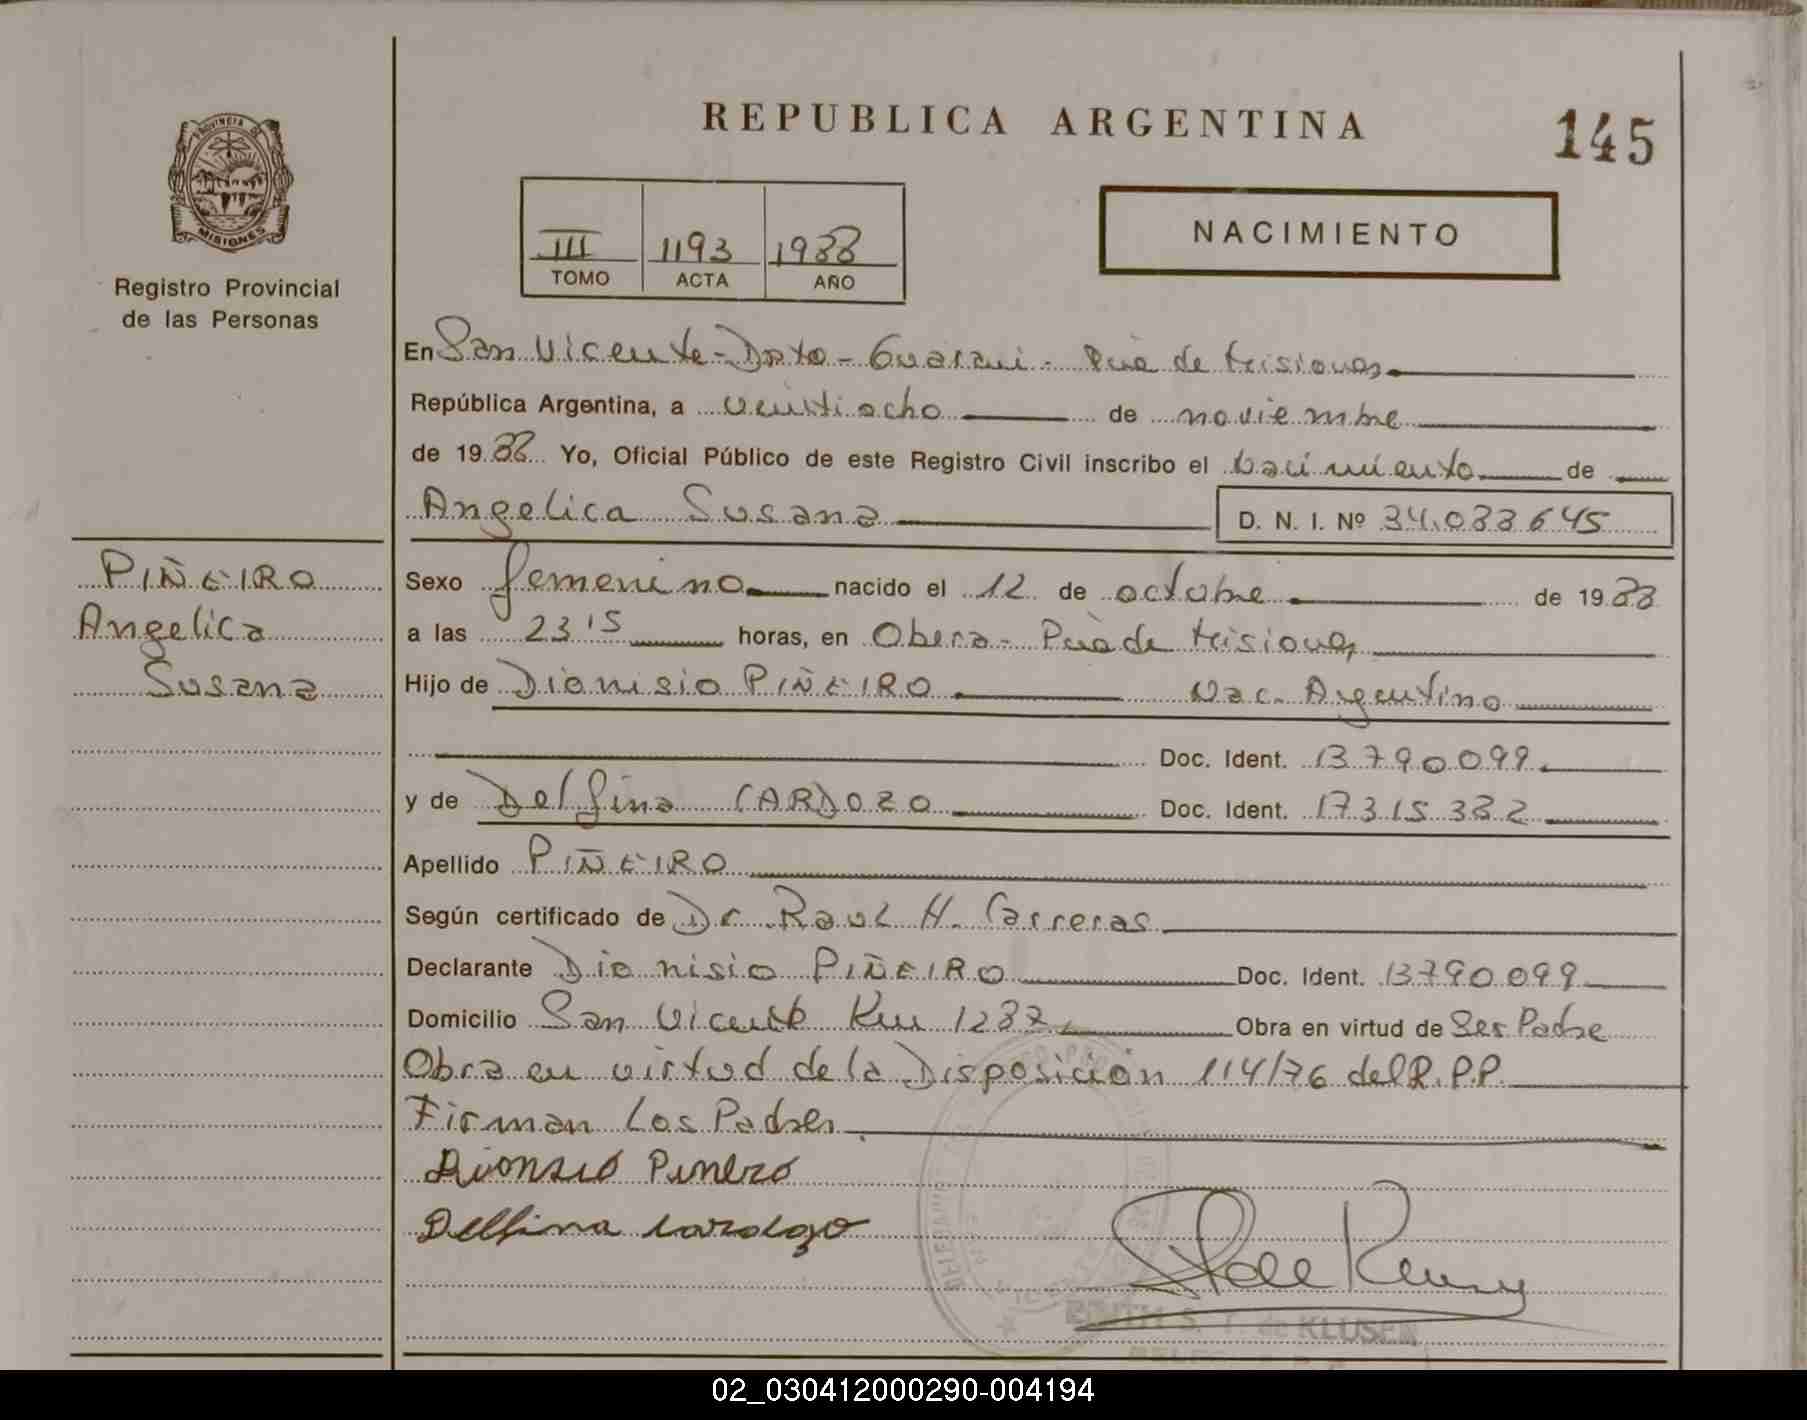 REPUBLICA ARGENTINA
145
PROVINCIA DE
MISIONES
Registro Provincial
de las Personas
III 1193 1988
TOMO ACTA AÑO
NACIMIENTO
En San Vicente - Dpto - Guarani - Pcia de Misiones
República Argentina, a veintiocho de noviembre
de 1988 Yo, Oficial Público de este Registro Civil inscribo el nacimiento de
Angelica Susana D. N. I. Nº 34.088645
PIÑEIRO
Angelica
Susana
Sexo femenino nacido el 12 de octubre de 1988
a las 23 15 horas, en Obera - Pcia de Misiones
Hijo de Dionisio PIÑEIRO Nac. Argentino
Doc. Ident. 13790099
y de Delfina CARDOZO Doc. Ident. 17315382
Apellido PIÑEIRO
Según certificado de Dr Raul H. Carreras
Declarante Dionisio PIÑEIRO Doc. Ident. 13790099
Domicilio San Vicente Km 1287 Obra en virtud de Ser Padre
Obra en virtud de la Disposición 114/76 del R.P.P.
Firman Los Padres
Delfina
EDITH S. T. de KLUSEN
02_030412000290-004194